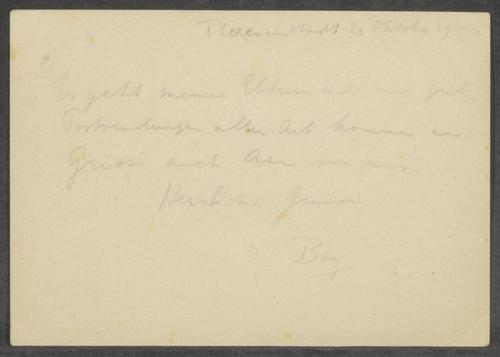 Theresienstadt 20 Oktober
Es geht meinen Eltern und uns gut
Postsendungen aller Art kommen an
Grüsse auch von uns.
Herzliche Grüsse